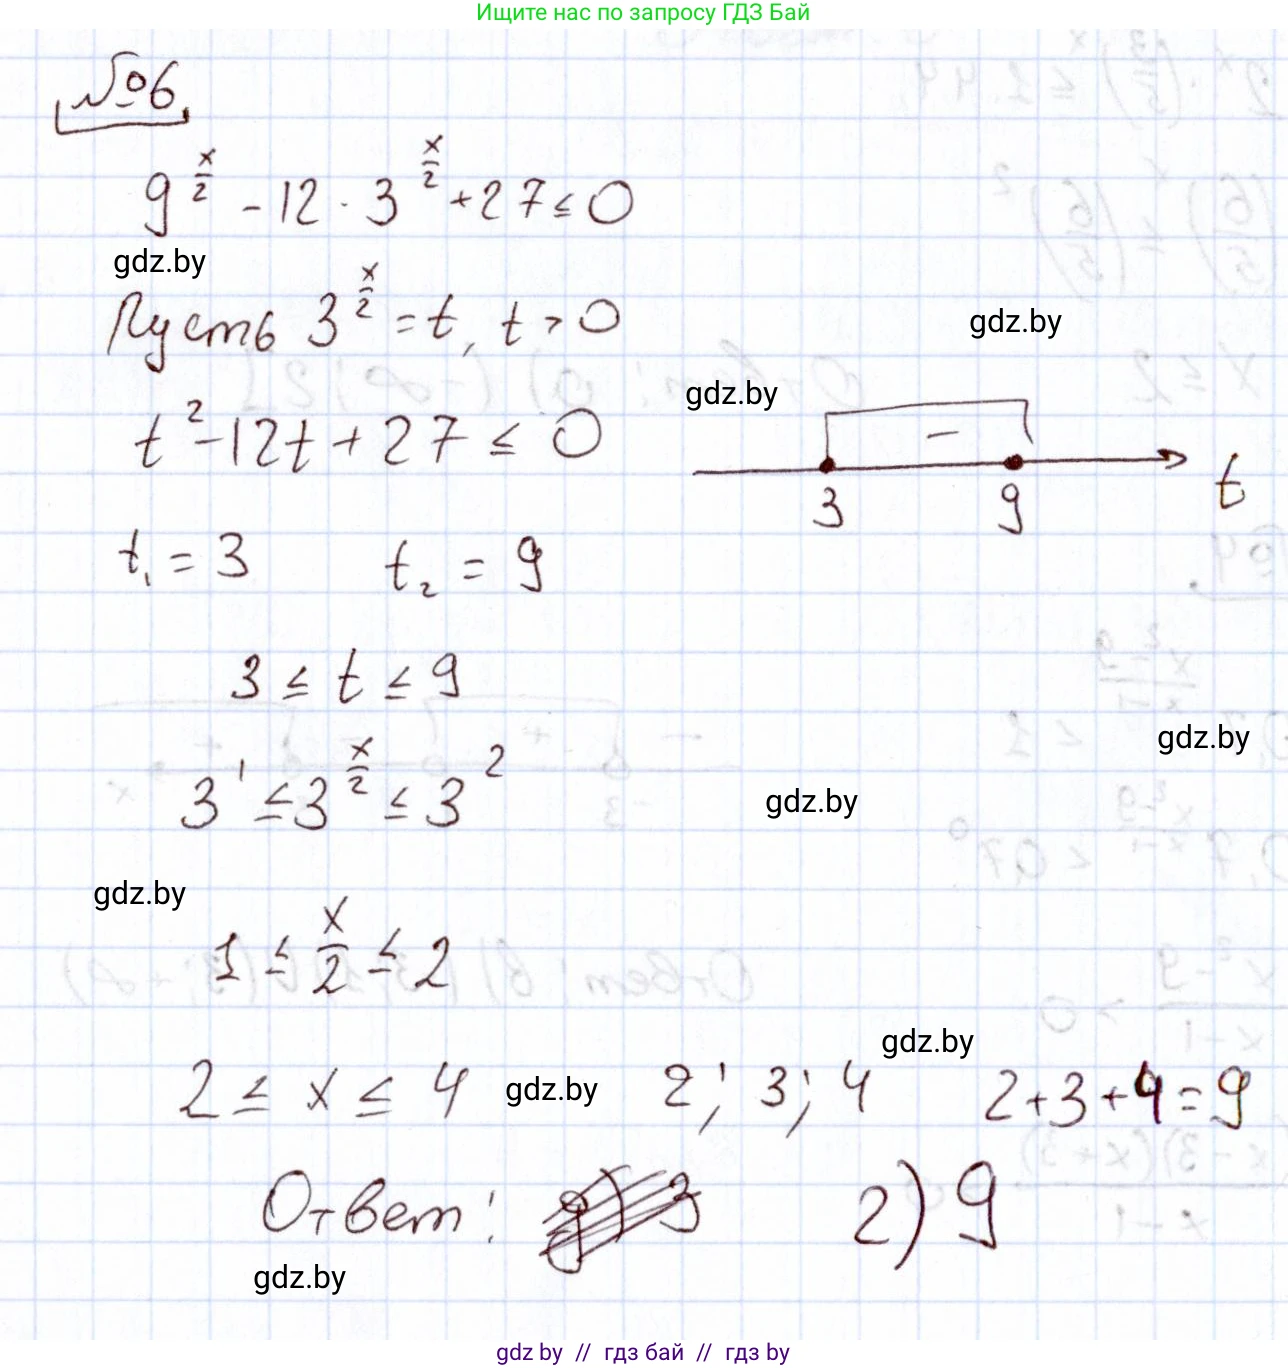 Ищите нас по запросу ГДЗ Бай
№6
9^{x/2} - 12 · 3^{x/2} + 27 ≤ 0
gdz.by
Пусть 3^{x/2} = t, t > 0
gdz.by
gdz.by
t² - 12t + 27 ≤ 0
−
3 9 t
t₁ = 3 t₂ = 9
3 ≤ t ≤ 9
gdz.by
3¹ ≤ 3^{x/2} ≤ 3²
gdz.by
gdz.by
1 ≤ x/2 ≤ 2
gdz.by
2 ≤ x ≤ 4 gdz.by 2; 3; 4 2+3+4=9
Ответ: г) 9
gdz.by
gdz by // гдз бай // гдз by